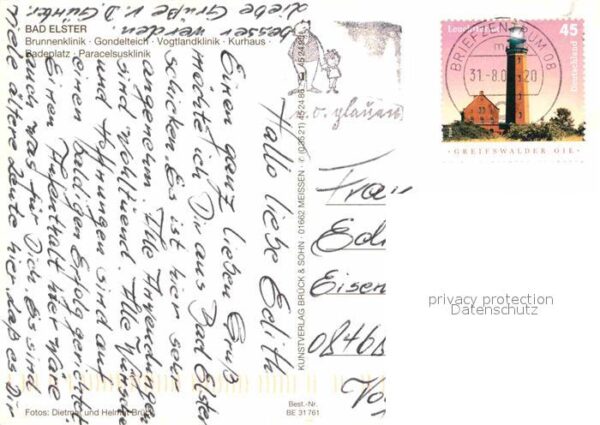 BAD ELSTER
Brunnenklinik · Gondelteich · Vogtlandklinik · Kurhaus ·
Badeplatz · Paracelsusklinik
Hallo liebe Edith
Einen ganz lieben Gruß
möchte ich Dir aus Bad Elster
schicken. Es ist hier sehr
angenehm. Alle Anwendungen
sind wohltuend. Alle Wünsche
und Hoffnungen sind auf
einen baldigen Erfolg gerichtet.
Einen Aufenthalt hier wäre
auch was für Dich. Es sind
viele ältere Leute hier, daß es Dir
besser werden.
liebe Grüße v. D. Günter.
KUNSTVERLAG BRÜCK & SOHN · 01662 MEISSEN ·
Fotos: Dietmar und Helmut Brück
Best.-Nr.
BE 31 761
Frau
Eisen
BRIEFZENTRUM 08
45
Deutschland
GREIFSWALDER OIE
privacy protection
Datenschutz